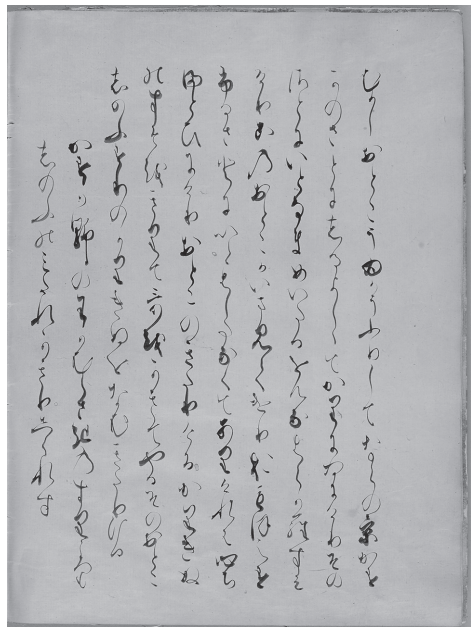 むかしおとこうゐかうふりしてならの京かす
かのさとにしるよしゝてかりにいにけりその
さとにいとなまめいたるをんなはらからすみ
けりこのおとこかいまみてけりおもほえす
ふるさとにいとはしたなくてありけれは心ち
まとひにけりおとこのきたりけるかりきぬ
のすそをきりて哥をかきてやるそのおとこ
しのふすりのかりきぬをなむきたりける
かすか野のわかむらさきのすりころも
しのふのみたれかきりしられす